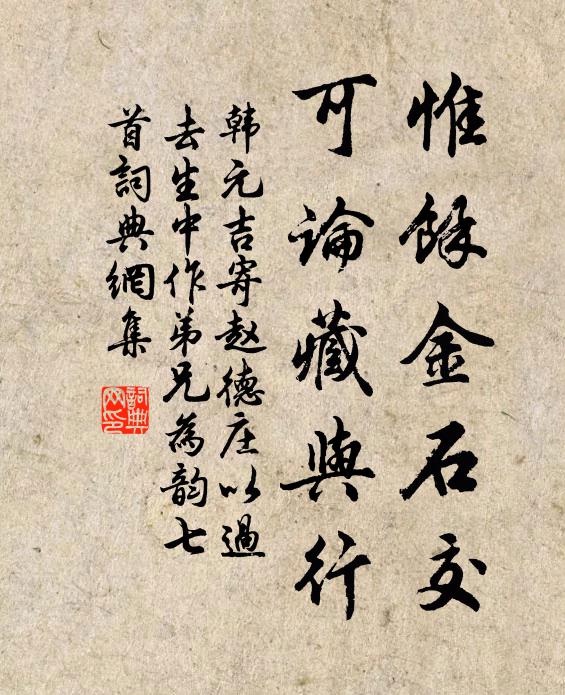 惟餘金石交
可論藏與行
韩元吉寄赵德庄以過
去生中作弟兄為韵七
首詞典網集
詞典
网印